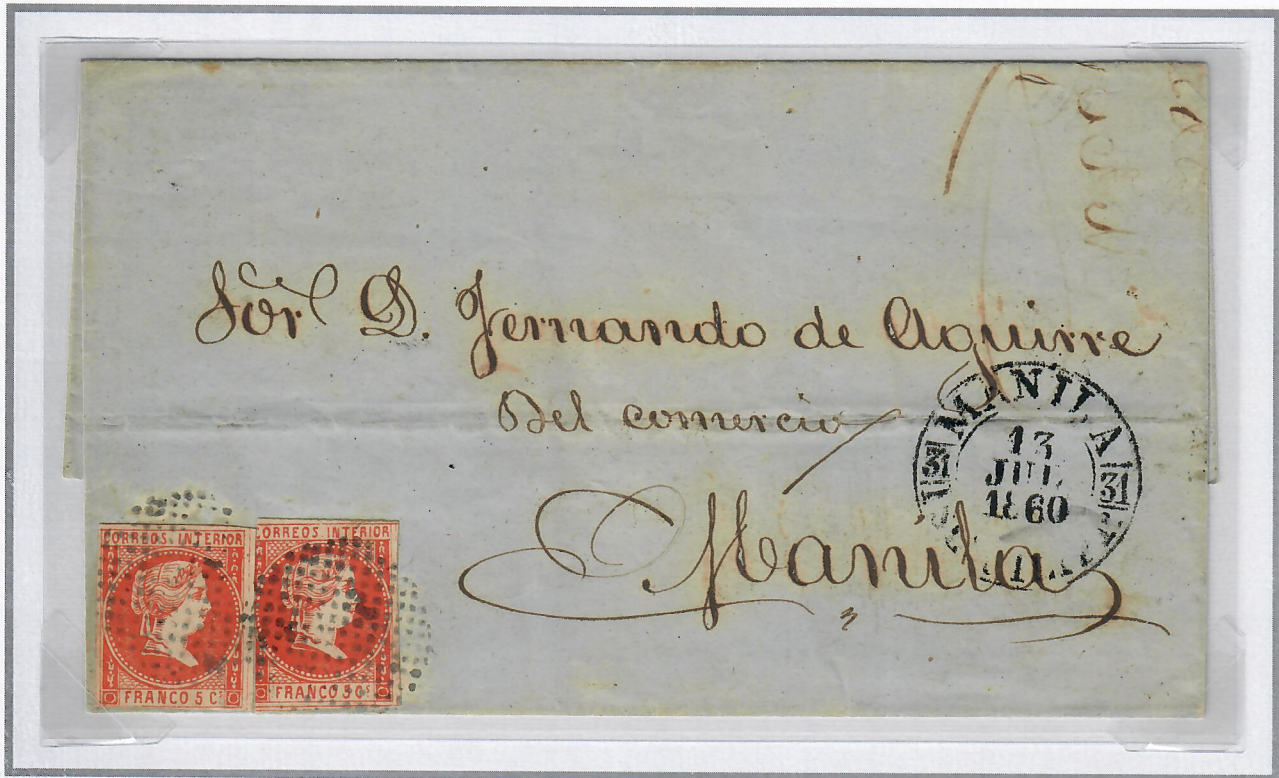 Sor D. Fernando de Aguirre
Del comercio
Manila
MANILA
31 31
13
JUL
1860
CORREOS INTERIOR
FRANCO 5 Cs
CORREOS INTERIOR
FRANCO 5 Cs